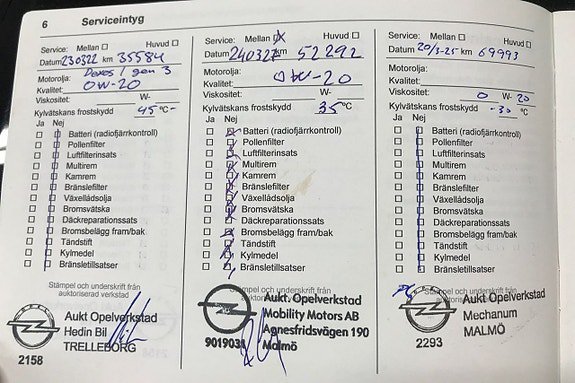 6 Serviceintyg
Service: Mellan ☐ Huvud ☐
Datum 230322 km 35584
Motorolja: Dexos 1 gen 3
Kvalitet: 0W-20
Viskositet: W-
Kylvätskans frostskydd -45 °C
Ja Nej
Batteri (radiofjärrkontroll)
Pollenfilter
Luftfilterinsats
Multirem
Kamrem
Bränslefilter
Växellådsolja
Bromsvätska
Däckreparationssats
Bromsbelägg fram/bak
Tändstift
Kylmedel
Bränsletillsatser
Stämpel och underskrift från
auktoriserad verkstad
Aukt Opelverkstad
Hedin Bil
TRELLEBORG
2158
Service: Mellan ☒ Huvud ☐
Datum 240327 km 52292
Motorolja:
Kvalitet: 0W-20
Viskositet: W-
Kylvätskans frostskydd 35 °C
Ja Nej
Batteri (radiofjärrkontroll)
Pollenfilter
Luftfilterinsats
Multirem
Kamrem
Bränslefilter
Växellådsolja
Bromsvätska
Däckreparationssats
Bromsbelägg fram/bak
Tändstift
Kylmedel
Bränsletillsatser
Stämpel och underskrift från
Aukt Opelverkstad
Mobility Motors AB
Agnesfridsvägen 190
9019031 Malmö
Service: Mellan ☐ Huvud ☐
Datum 20/3-25 km 69993
Motorolja:
Kvalitet:
Viskositet: 0 W- 20
Kylvätskans frostskydd -30 °C
Ja Nej
Batteri (radiofjärrkontroll)
Pollenfilter
Luftfilterinsats
Multirem
Kamrem
Bränslefilter
Växellådsolja
Bromsvätska
Däckreparationssats
Bromsbelägg fram/bak
Tändstift
Kylmedel
Bränsletillsatser
Stämpel och underskrift från
auktoriserad verkstad
Aukt Opelverkstad
Mechanum
MALMÖ
2293